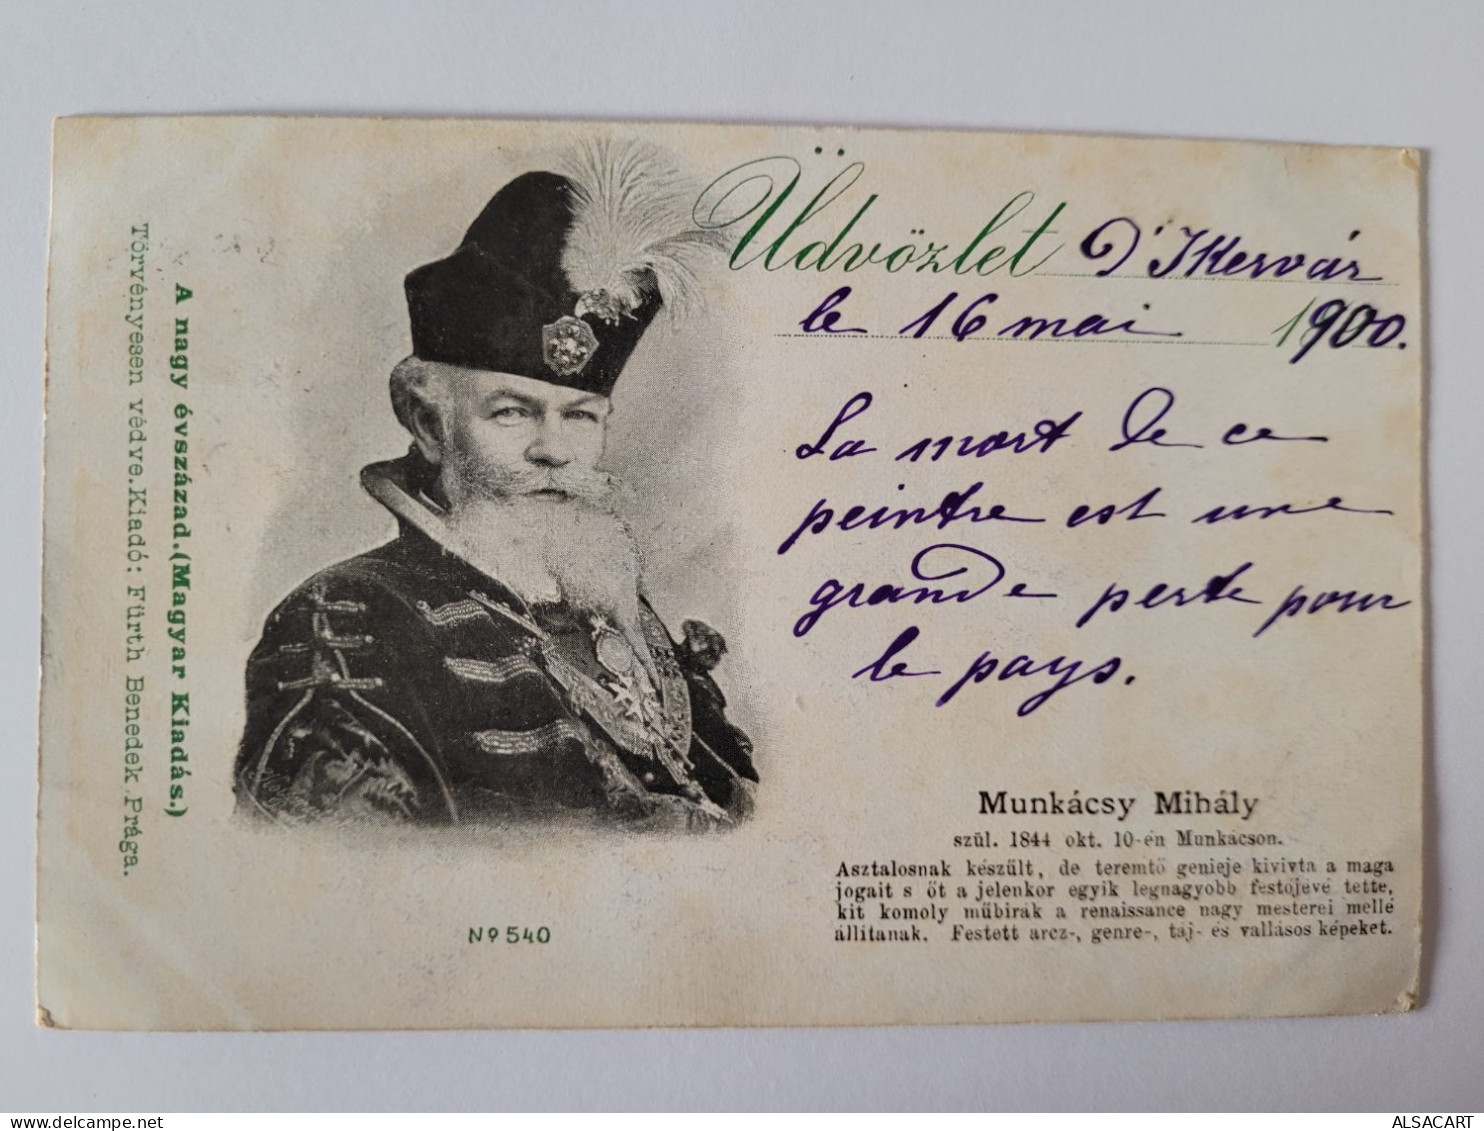 Üdvözlet D'Ikervár
le 16 mai 1900.
La mort de ce
peintre est une
grande perte pour
le pays.
Munkácsy Mihály
szül. 1844 okt. 10-én Munkácson.
Asztalosnak készült, de teremtő genieje kivivta a maga
jogait s őt a jelenkor egyik legnagyobb festőjévé tette,
kit komoly műbirák a renaissance nagy mesterei mellé
állitanak. Festett arcz-, genre-, táj- és vallásos képeket.
A nagy évszázad.(Magyar Kiadás.)
Törvényesen védve.Kiadó: Fürth Benedek.Prága.
Nº 540
ALSACART